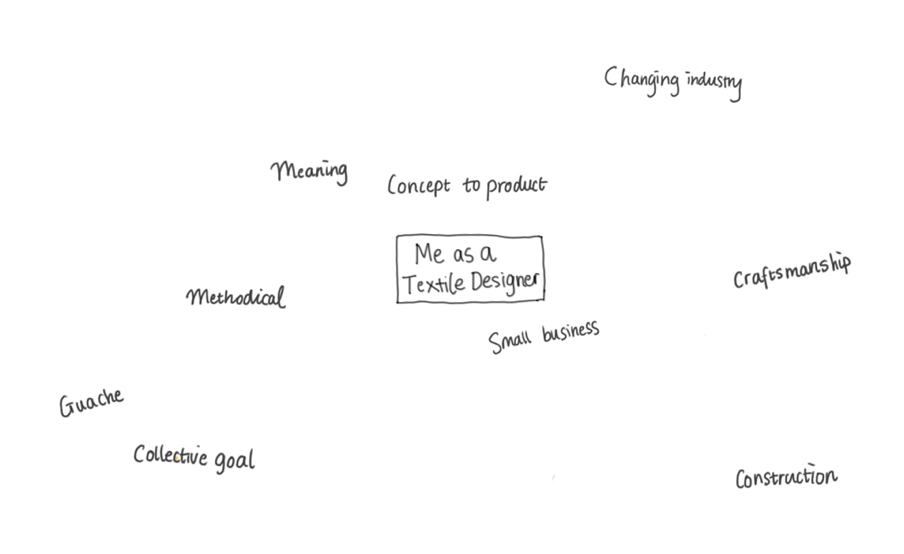 Changing industry
Meaning
Concept to product
Me as a
Textile Designer
Craftsmanship
Methodical
Small business
Guache
Collective goal
Construction